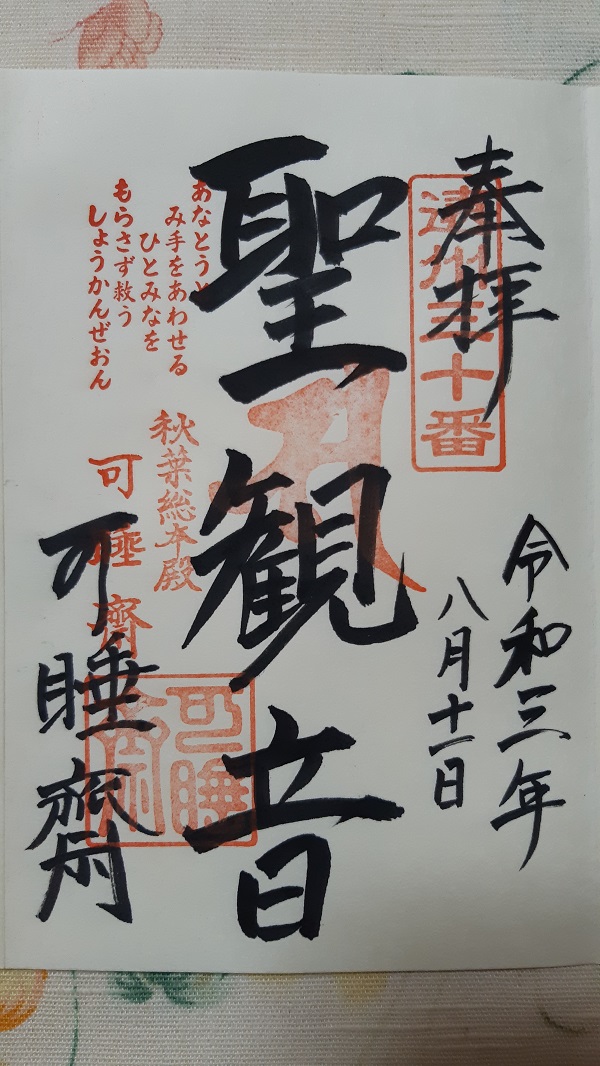 奉拝
遠州三十番
令和三年
八月十一日
聖観音
あなとうと
み手をあわせる
ひとみなを
もらさず救う
しょうかんぜおん
秋葉総本殿
可睡齋
可睡齋